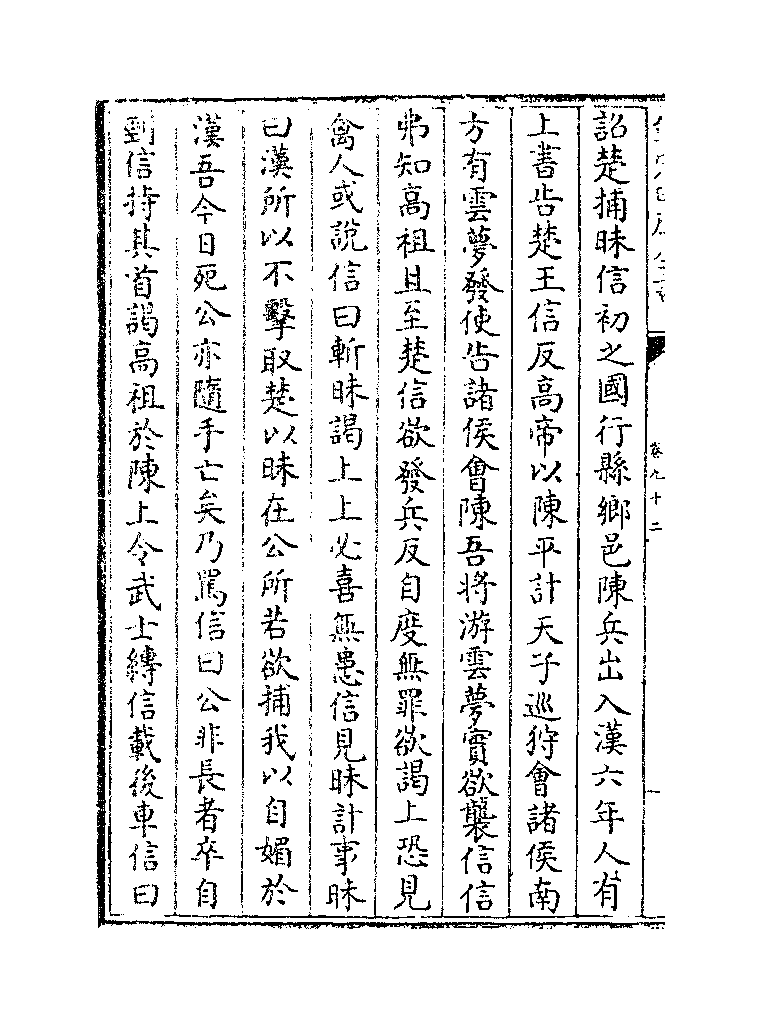 卷九十二
詔楚捕昧信初之國行縣鄉邑陳兵出入漢六年人有
上書告楚王信反高帝以陳平計天子巡狩會諸侯南
方有雲夢發使告諸侯會陳吾將游雲夢實欲襲信信
弗知高祖且至楚信欲發兵反自度無罪欲謁上恐見
禽人或說信曰斬昧謁上上必喜無患信見昧計事昧
曰漢所以不擊取楚以昧在公所若欲捕我以自媚於
漢吾今日死公亦隨手亡矣乃罵信曰公非長者卒自
剄信持其首謁高祖於陳上令武士縛信載後車信曰